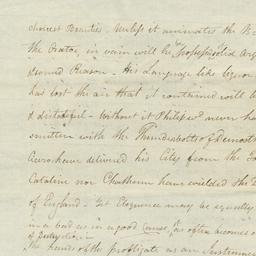 choicest Beauties. Unless it animates the
the Orator, in vain will he
sound Reason. His Language like liquor
has lost the air that it contained will
& distasteful - Without it Philip would never have
smitten with the Thunderbolts of Demost
Cicero have delivered his City from the
Cataline nor Chatham have wielded the
of England - Yet Eloquence may be equally
in a bad as in a good Cause, & as often becomes
of Sedition
The hands of the profligate as an Instrumen